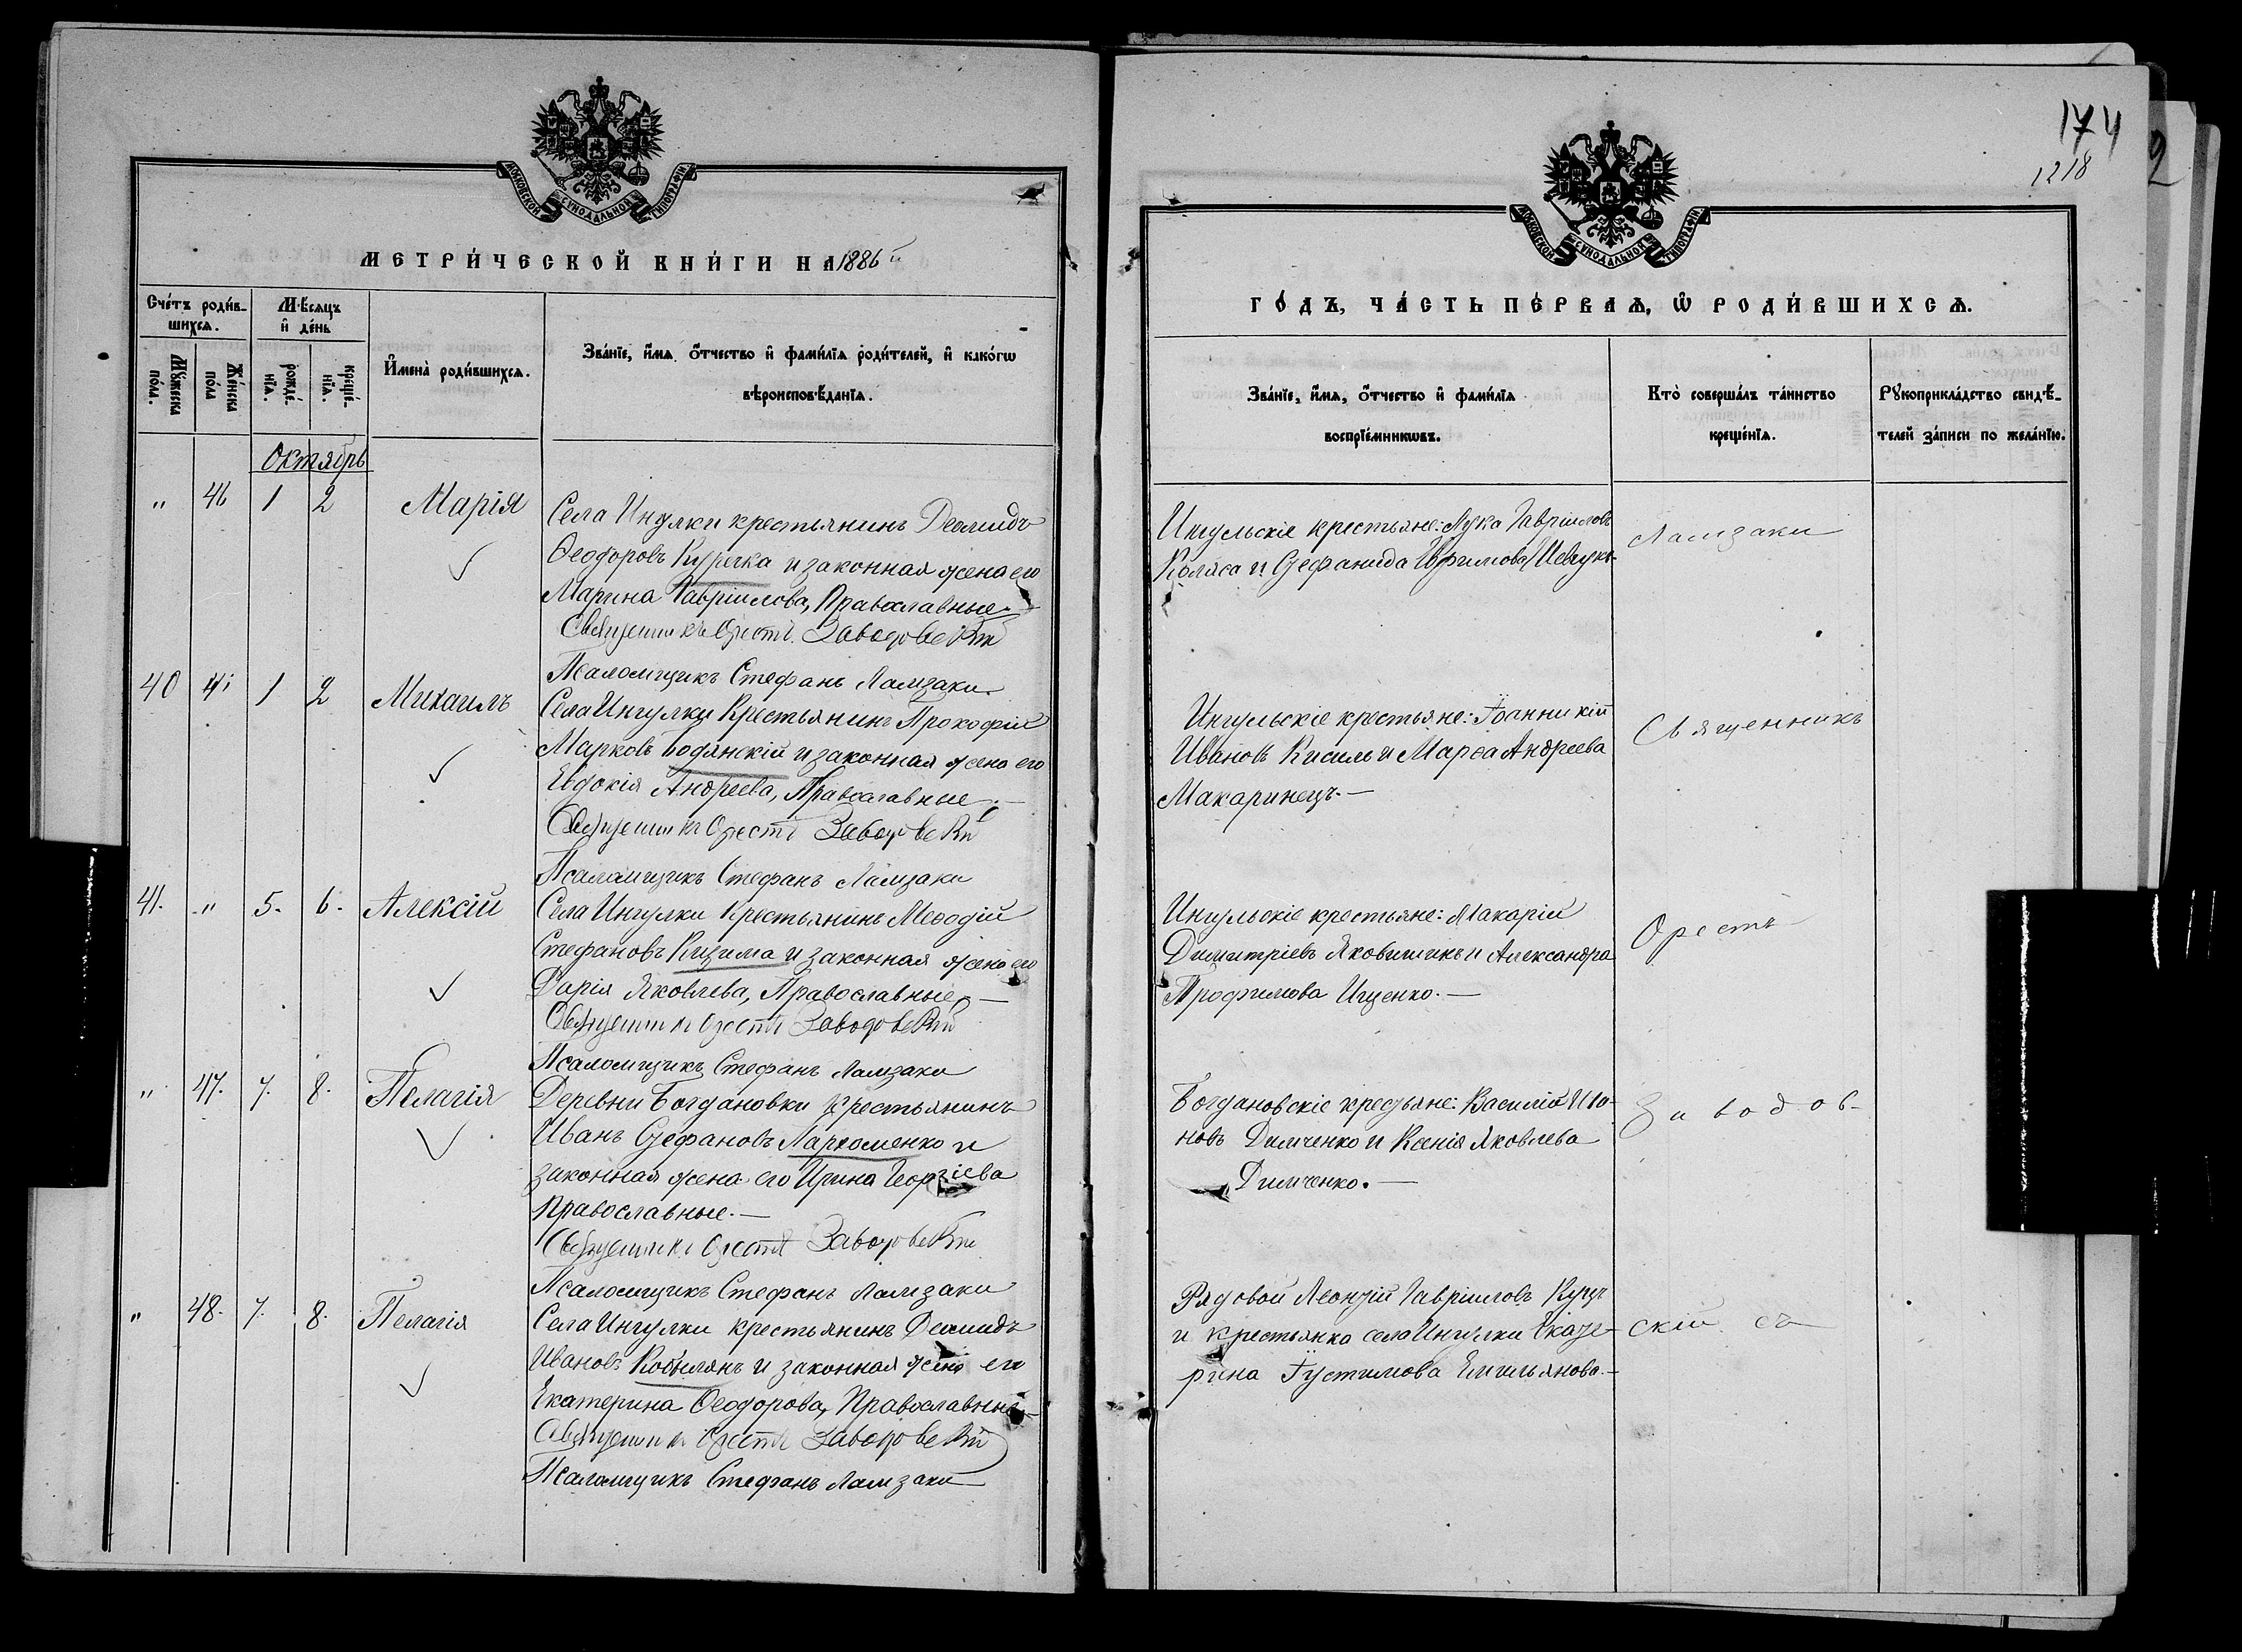 МОСКОВСКОЙ СУНОДАЛЬНОЙ ТИПОГРАФІИ
МЕТРИ́ЧЕСКОЙ КНИ́ГИ НА 1886й
Сче́тъ роди́в-
шихся.
Мѣсяцъ
и҆ де́нь
Мꙋ́жеска
по́ла.
Же́нска
по́ла
рожде́-
нїя.
креще́-
нїя.
И҆мена̀ роди́вшихся.
Зва́нїе, и҆́мя, ѻ҆́тчество и҆ фами́лїя роди́телей, и҆ како́гѡ
вѣроисповѣ́данїя.
Октябрь
" 46 1 2 Марія
Села Ингулки крестьянинъ Деомидъ
Ѳеодоровъ Курička и законная жена его
Марина Гавріилова, Православные.
Священникъ Орестъ Заводовскій
Псаломщикъ Стефанъ Ламзаки.
40 " 1 2 Михаилъ
Села Ингулки Крестьянинъ Прокофій
Марковъ Бодянскій и законная жена его
Евдокія Андреева, Православные.—
Священникъ Орестъ Заводовскій
Псаломщикъ Стефанъ Ламзаки
41. " 5. 6. Алексій
Села Ингулки Крестьянинъ Меѳодій
Стефановъ Кизима и законная жена его
Дарія Яковлева, Православные.—
Священникъ Орестъ Заводовскій
Псаломщикъ Стефанъ Ламзаки
" 47. 7. 8. Пелагія
Деревни Богдановки крестьянинъ
Иванъ Стефановъ Пархоменко и
законная жена его Ирина Георгіева
Православные.—
Священникъ Орестъ Заводовскій
Псаломщикъ Стефанъ Ламзаки
" 48. 7. 8. Пелагія
Села Ингулки крестьянинъ Деомидъ
Ивановъ Кобылянъ и законная жена его
Екатерина Ѳеодорова, Православные—
Священникъ Орестъ Заводовскій
Псаломщикъ Стефанъ Ламзаки
174
1218
2
МОСКОВСКОЙ СУНОДАЛЬНОЙ ТИПОГРАФІИ
ГО́ДЪ, ЧА́СТЬ ПЕ́РВАЯ, Ѽ РОДИ́ВШИХСЯ.
Зва́нїе, и҆́мя, ѻ҆́тчество и҆ фами́лїя
воспрїе́мникѡвъ.
Кто̀ соверша́лъ та́инство
креще́нїя.
Рꙋкоприкла́дство свидѣ́-
телей за́писи по жела́нїю.
Ингульскіе крестьяне: Лука Гавріиловъ
Коляса и Стефанида Ефимова
Ламзаки
Ингульскіе крестьяне: Іоанникій
Ивановъ Кисиль и Марѳа Андреева
Макаринецъ.—
Священникъ
Ингульскіе крестьяне: Макарій
Димитріевъ и Александра
Трофимова Ищенко.—
Орестъ
Богдановскіе крестьяне: Василій Ива-
новъ Димченко и Ксенія Яковлева
Димченко.—
Заводов-
Рядовой Леонтій Гавріиловъ
и крестьянка села Ингулки Екате-
рина Іустимова Емильянова.—
скій съ